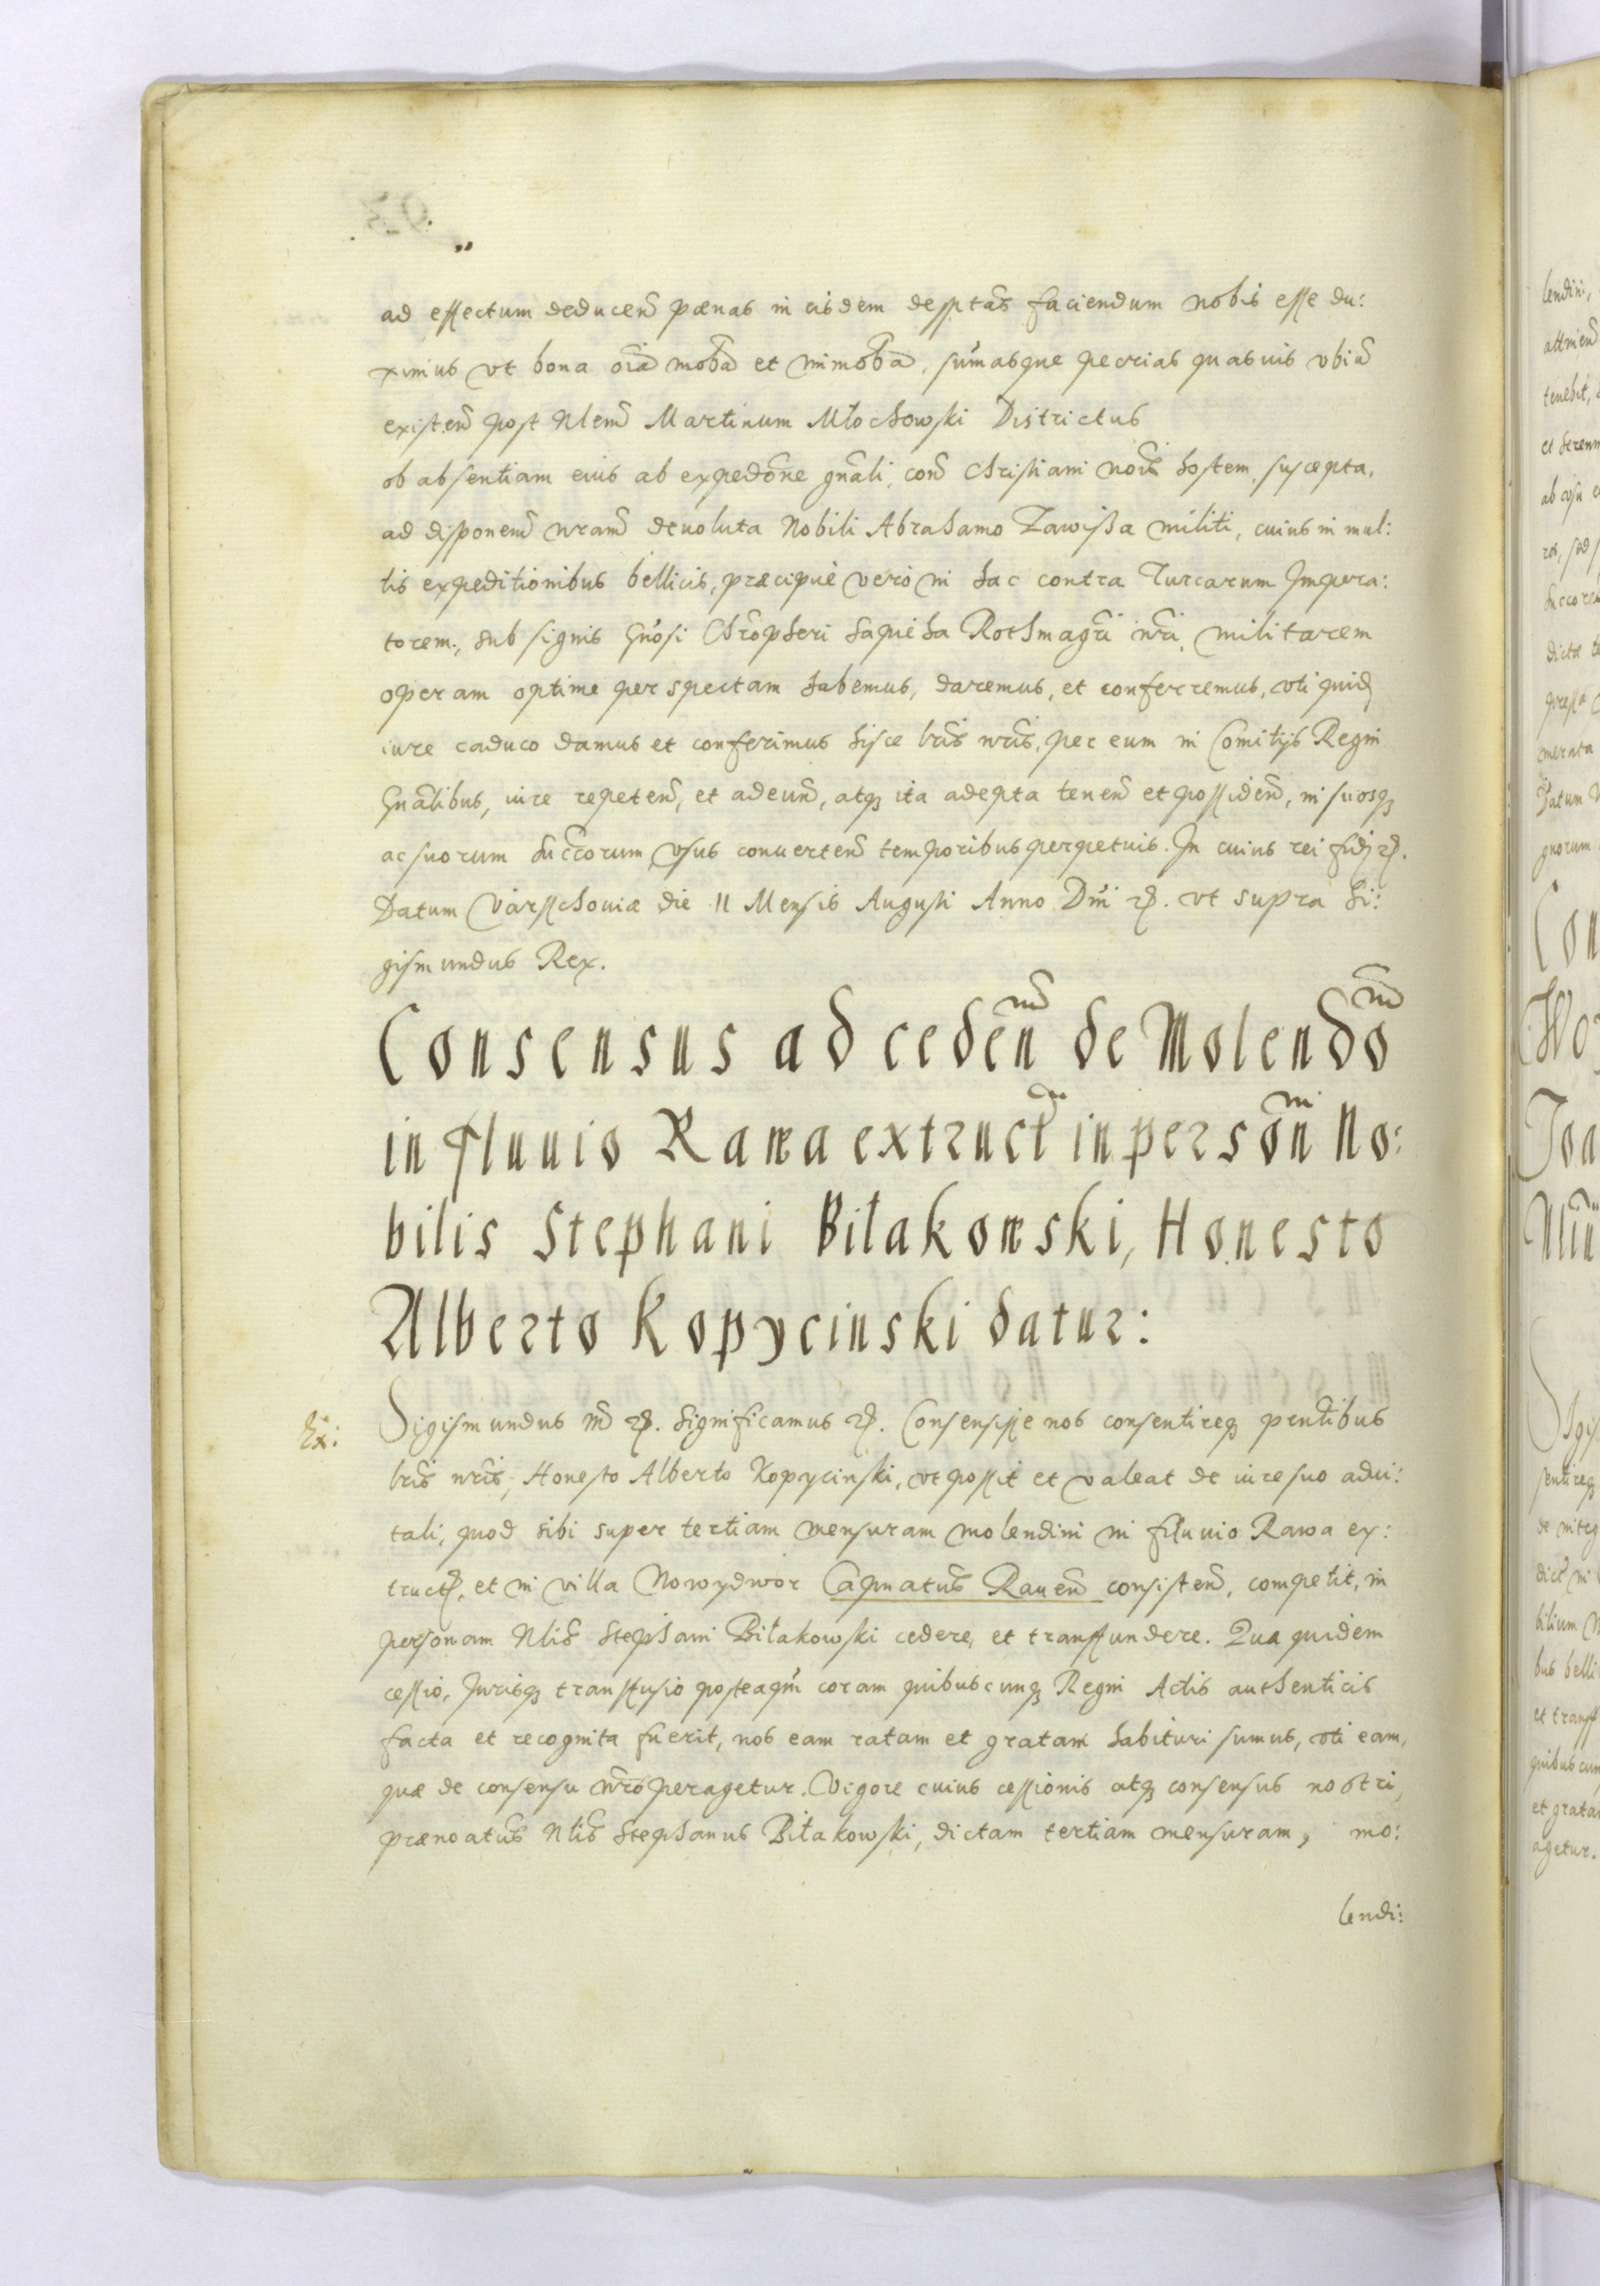 ad effectum deducen̄ pænas in eisdem desptas faciendum nobis esse du:
ximus vt bona oīa mobā et immobā, sūmasque pecrias quasuis vbiā
existen̄ post Nlem̄ Martinum Młochowski Districtus
ob absentiam eius ab expedōne gnāli, con̄ Christiani nois hostem, suscepta,
ad disponem̄ nram̄ deuoluta Nobili Abrahamo Zawissa militi, cuius in mul:
tis expeditionibus bellicis, præcipuè verò in hac contra Turcarum Impera:
torem, sub signis Gnosi Chrōpheri Sapieha Rothmagri nrī, militarem
operam optime perspectam habemus, daremus, et conferremus, vti quidē
iure caduco damus et conferimus hisce lrīs nrīs, per eum in Comitijs Regni
Gnālibus, iure repeten̄, et adeun̄, atq; ita adepta tenen̄ et possiden̄, in suosq;
ac suorum succōrum vsus conuerten̄ temporibus perpetuis. In cuius rei fidē &c.
Datum Varsschouiæ die 11 Mensis Augusti Anno Dnī &c. vt supra Si:
gismundus Rex.
Consensus ad ceden̄m de Molendōm
in fluuio Rawa extruct̄ in persōnm No:
bilis Stephani Biłakowski, Honesto
Alberto Kopycinski datur:
Ex:
Sigismundus 3us &c. Significamus &c. Consensisse nos consentireq; prntibus
lrīs nrīs, Honesto Alberto Kopycinski, vt possit et valeat de iure suo adui:
tali, quod sibi super tertiam mensuram molendini in fluuio Rawa ex:
truct̄, et in villa Nowydwor Capnatus Rauen̄ consisten̄, competit, in
personam Nlis Stephani Biłakowski cedere, et transfundere. Qua quidem
cessio, Jurisq; transfusio posteaqm̄ coram quibuscunq; Regni Actis authenticis
facta et recognita fuerit, nos eam ratam et gratam habituri sumus, vti eam,
quæ de consensu nrō peragetur. Vigore cuius cessionis atq; consensus nostri,
prænoatus Nlis Stephanus Biłakowski, dictam tertiam mensuram, mo:
lendi: